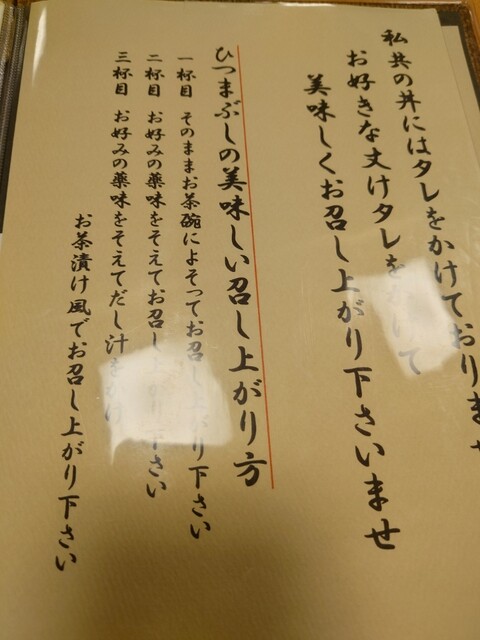 私共の丼にはタレをかけておりま
お好きな丈けタレを けて
美味しくお召し上がり下さいませ
ひつまぶしの美味しい召し上がり方
一杯目 そのままお茶碗によそってお召し上がり下さい
二杯目 お好みの薬味をそえてお召し上がり下さい
三杯目 お好みの薬味をそえてだし汁をかけ
お茶漬け風でお召し上がり下さい